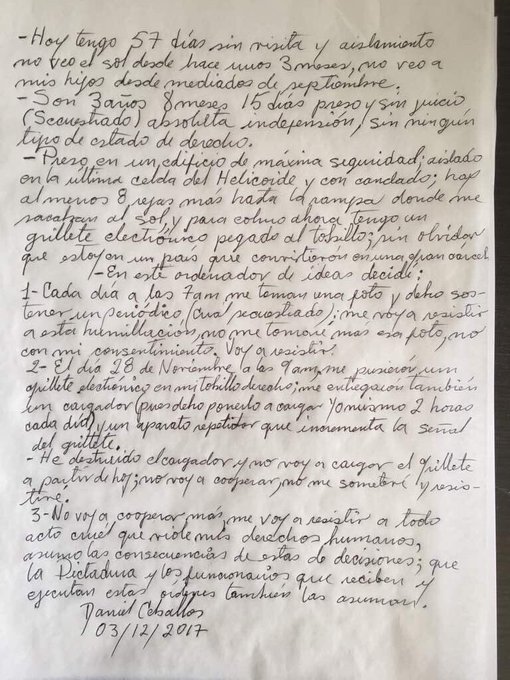 -Hoy tengo 57 días sin visita y aislamiento
no veo el sol desde hace unos 3 meses, no veo a
mis hijos desde mediados de septiembre.
-Son 3 años 8 meses 15 días preso y sin juicio
(Secuestrado) absoluta indefensión, sin ningún
tipo de estado de derecho.
-Preso en un edificio de máxima seguridad; aislado
en la última celda del Helicoide y con candado; hay
al menos 8 rejas más hasta la rampa donde me
sacaban al sol, y para colmo ahora tengo un
grillete electrónico pegado al tobillo; sin olvidar
que estoy en un país que convirtieron en una gran cárcel
-En este ordenador de ideas decidí:
1-Cada día a las 7am me toman una foto y debo sos-
tener un periódico (cual secuestrado); me voy a resistir
a esta humillación, no me tomaré más esa foto, no
con mi consentimiento. Voy a resistir.
2- El día 28 de Noviembre a las 9am, me pusieron un
grillete electrónico en mi tobillo derecho; me entregaron también
un cargador (pues debo ponerlo a cargar yo mismo 2 horas
cada día) y un aparato repetidor que incrementa la señal
del grillete.
-He destruido el cargador y no voy a cargar el grillete
a partir de hoy; no voy a cooperar, no me someteré y resis-
tiré.
3-No voy a cooperar más, me voy a resistir a todo
acto cruel que viole mis derechos humanos,
asumo las consecuencias de estas de decisiones; que
la Dictadura y los funcionarios que reciben y
ejecutan estas órdenes también las asuman.
Daniel Ceballos
03/12/2017